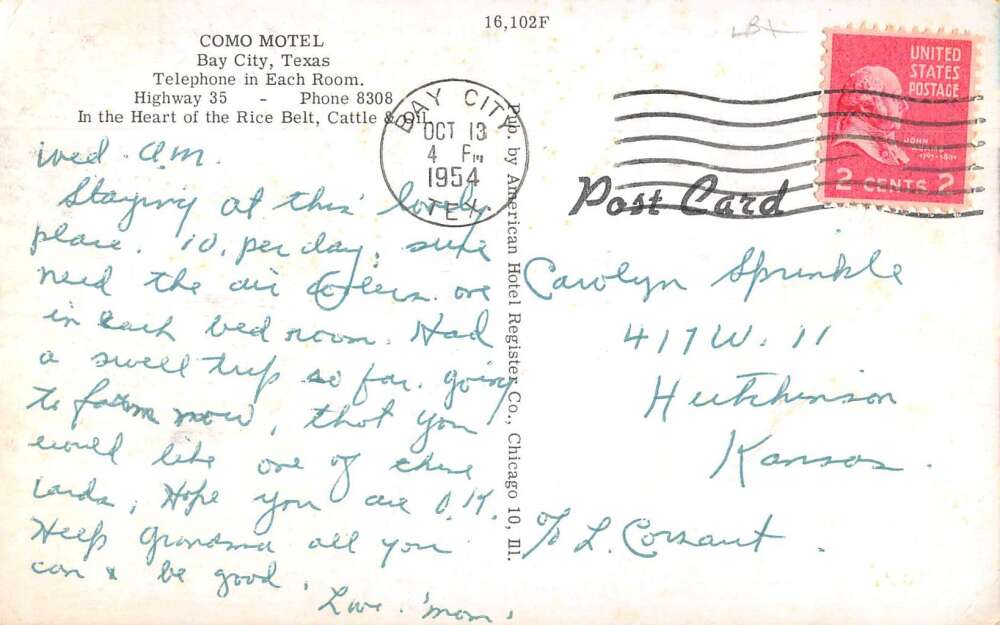 16,102F
COMO MOTEL
Bay City, Texas
Telephone in Each Room.
Highway 35 - Phone 8308
In the Heart of the Rice Belt, Cattle & Oil
BAY CITY
OCT 13
4 PM
1954
TEX
UNITED
STATES
POSTAGE
JOHN
ADAMS
1797-1801
2 CENTS 2
Post Card
Pub. by American Hotel Register Co., Chicago 10, Ill.
Wed. A.M.
Staying at this lovely
place. 10. per day, sure
need the air coolers. one
in each bed room. Had
a swell trip so far. going
to farm now, that you
would like one of these
cards, Hope you are O.K.
Help Grandma all you
can & be good.
Love. Mom.
Carolyn Sprinkle
417 W. 11
Hutchinson
Kansas.
c/o L. Corsaut.